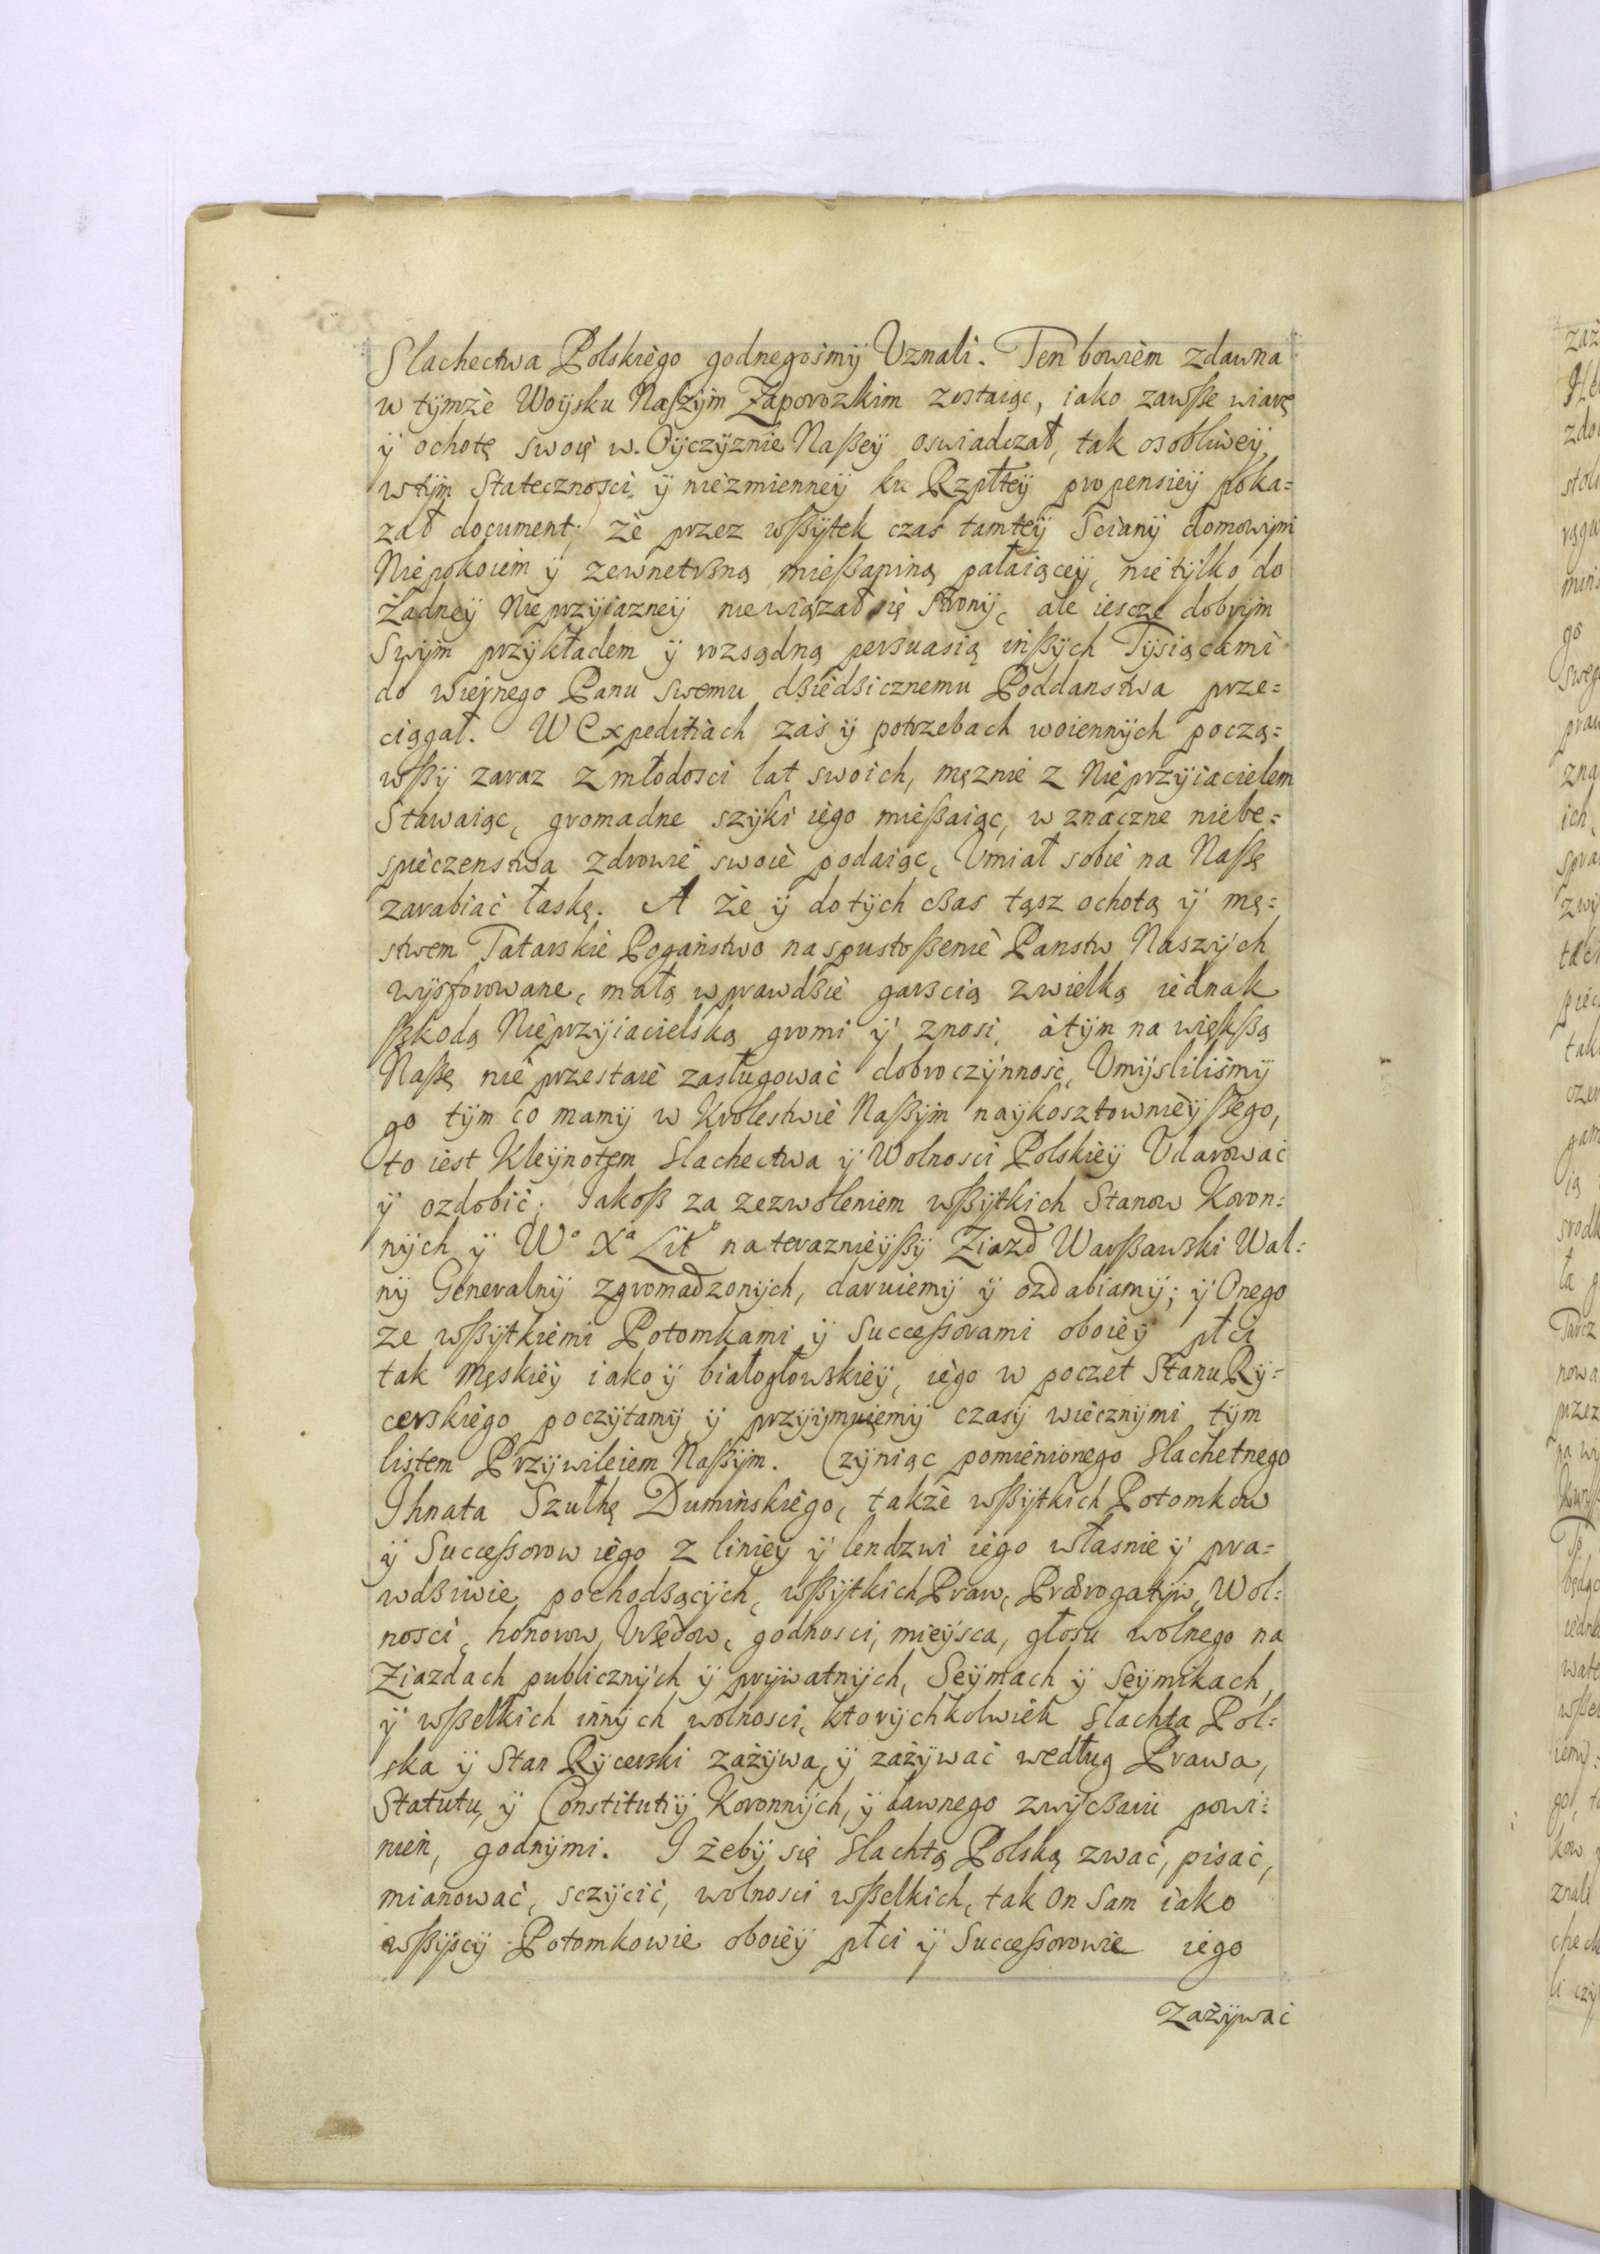 Slachectwa Polskiego godnegosmÿ Uznali. Ten bowiem zdawna
w tÿmże Woÿsku Naszÿm Zaporozkim zostaiąc, iako zawsze wiarę
ÿ ochotę swoię w Oÿczÿznie Naszeÿ oswiadczał, tak osobliweÿ
wtÿm Statecznosci ÿ niezmienneÿ ku Rzpłteÿ propensieÿ poka=
zał document, że przez wszÿtek czas tamteÿ Scianÿ domowÿm
Niepokoiem ÿ zewnetrzną mieszaniną pałaiąceÿ, nie tÿlko do
Żadneÿ Nieprzÿiazneÿ niewiązał się stronÿ, ale iescze dobrÿm
Swÿm przÿkładem ÿ rozsądną perswasią inszÿch Tÿsiącami
do wiernego Panu swemu dziedzicznemu Poddanstwa prze=
ciągał. W Expeditiach zaś ÿ potrzebach woiennÿch począ=
wszÿ zaraz z młodosci lat swoich, mężnie z Nieprzÿiacielem
Stawaiąc, gromadne szÿki iego mieszaiąc, w znaczne niebe=
spieczenstwa zdrowie swoie podaiąc, Umiał sobie na Naszę
zarabiać łaskę. A że ÿ do tÿch czas tąsz ochotą ÿ mę=
stwem Tatarskie Pogaństwo na spustoszenie Panstw Naszÿch
wÿsforowane, małą wprawdzie garscią zwielką iednak
szkodą Nieprzÿiacielską gromi ÿ znosi, a tÿm na większą
Naszę nie przestaie zasługować dobroczÿnność, Umÿslilismÿ
go tÿm co mamÿ w Krolestwie Naszÿm naÿkosztownieÿszego,
to iest Kleÿnotem Slachectwa ÿ Wolnosci Polskieÿ Udarować
ÿ ozdobić; Jakosz za zezwoleniem wszÿtkich Stanow Koron=
nÿch ÿ Wº Xª Litº na teraznieÿszÿ Ziazd Warszawski Wal=
nÿ Generalnÿ zgromadzonÿch, daruiemÿ ÿ ozdabiamÿ; ÿ Onego
ze wszÿtkiemi Potomkami ÿ Successorami oboieÿ płci
tak męskieÿ iako ÿ białogłowskieÿ, iego w poczet Stanu Rÿ=
cerskiego poczÿtamÿ ÿ przÿÿmuiemÿ czasÿ wiecznÿmi tÿm
listem Przÿwileiem Naszÿm. Czÿniąc pomienionego Slachetnego
Ihnata Szulhę Duminskiego, także wszÿtkich Potomkow
ÿ Successorow iego z linieÿ ÿ lendzwi iego własnie ÿ pra=
wdziwie pochodzącÿch, wszÿtkich Praw, Prærogatÿw, Wol=
nosci, honorow, Urzędow, godnosci, mieÿsca, głosu wolnego na
Ziazdach publicznÿch ÿ prÿwatnÿch, Seÿmach ÿ Seÿmikach,
ÿ wszelkich innÿch wolnosci, ktorÿchkolwiek Slachta Pol=
ska ÿ Stan Rÿcerski zażÿwa, ÿ zażÿwać według Prawa,
Statutu, ÿ Constitutiÿ Koronnÿch, ÿ dawnego zwÿczaiu powi=
nien, godnÿmi. I żebÿ się Slachtą Polską zwać, pisać,
mianować, sczÿcić, wolnosci wszelkich, tak On Sam iako
wszÿscÿ Potomkowie oboieÿ płci ÿ Successorowie iego
Zażÿwać